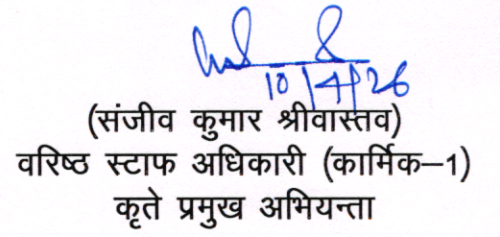 10/4/26
(संजीव कुमार श्रीवास्तव)
वरिष्ठ स्टाफ अधिकारी (कार्मिक–1)
कृते प्रमुख अभियन्ता